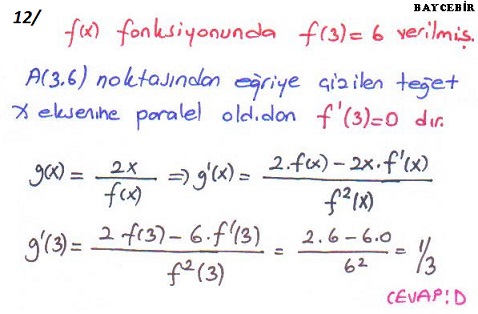 BAYCEBİR
12/
f(x) fonksiyonunda f(3)=6 verilmiş.
A(3,6) noktasından eğriye çizilen teğet
x eksenine paralel old.dan f'(3)=0 dır.
g(x) = 2x / f(x) ⇒ g'(x) = 2.f(x) - 2x.f'(x) / f²(x)
g'(3) = 2 f(3) - 6.f'(3) / f²(3) = 2.6 - 6.0 / 6² = 1/3
CEVAP: D